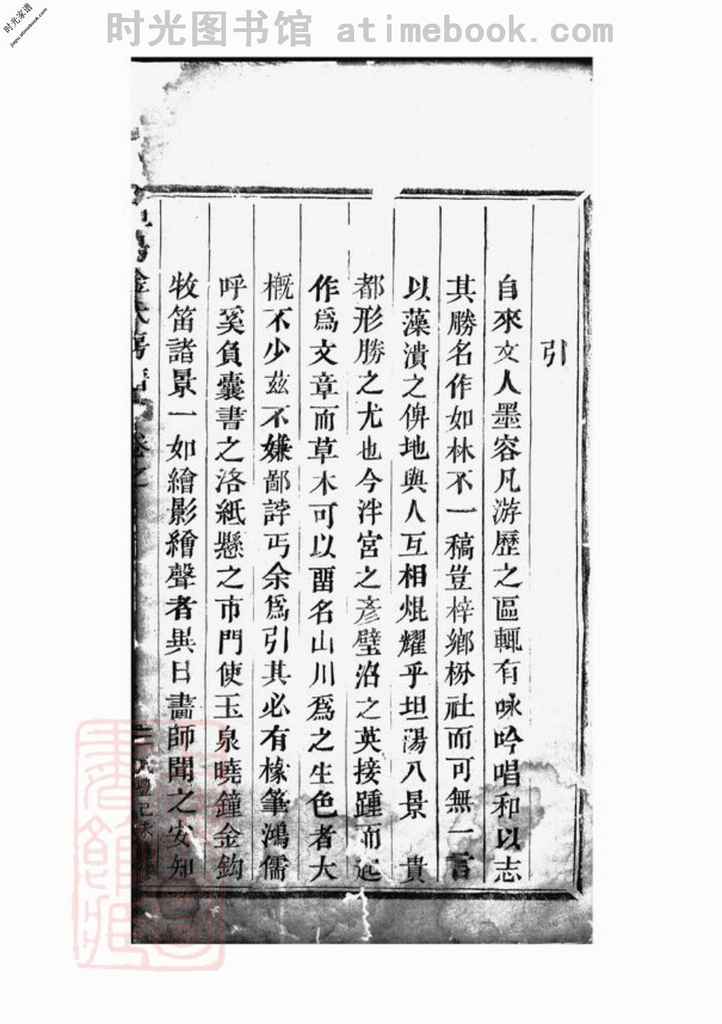 时光图书馆 atimebook.com
时光家谱
jiapu.atimebook.com
引
自來文人墨容凡游歷之區輒有咏吟唱和以志
其勝名作如林不一稿豈梓鄉枌社而可無一言
以藻潰之俾地與人互相焜耀乎坦湯八景 貴
都形勝之尤也今泮宮之彥璧沼之英接踵而起
作爲文章而草木可以畱名山川爲之生色者大
概不少茲不嫌鄙誖丐余爲引其必有椽筆鴻儒
呼奚負囊書之洛紙懸之市門使玉泉曉鐘金鈎
牧笛諸景一如繪影繪聲者異日畵師聞之安知